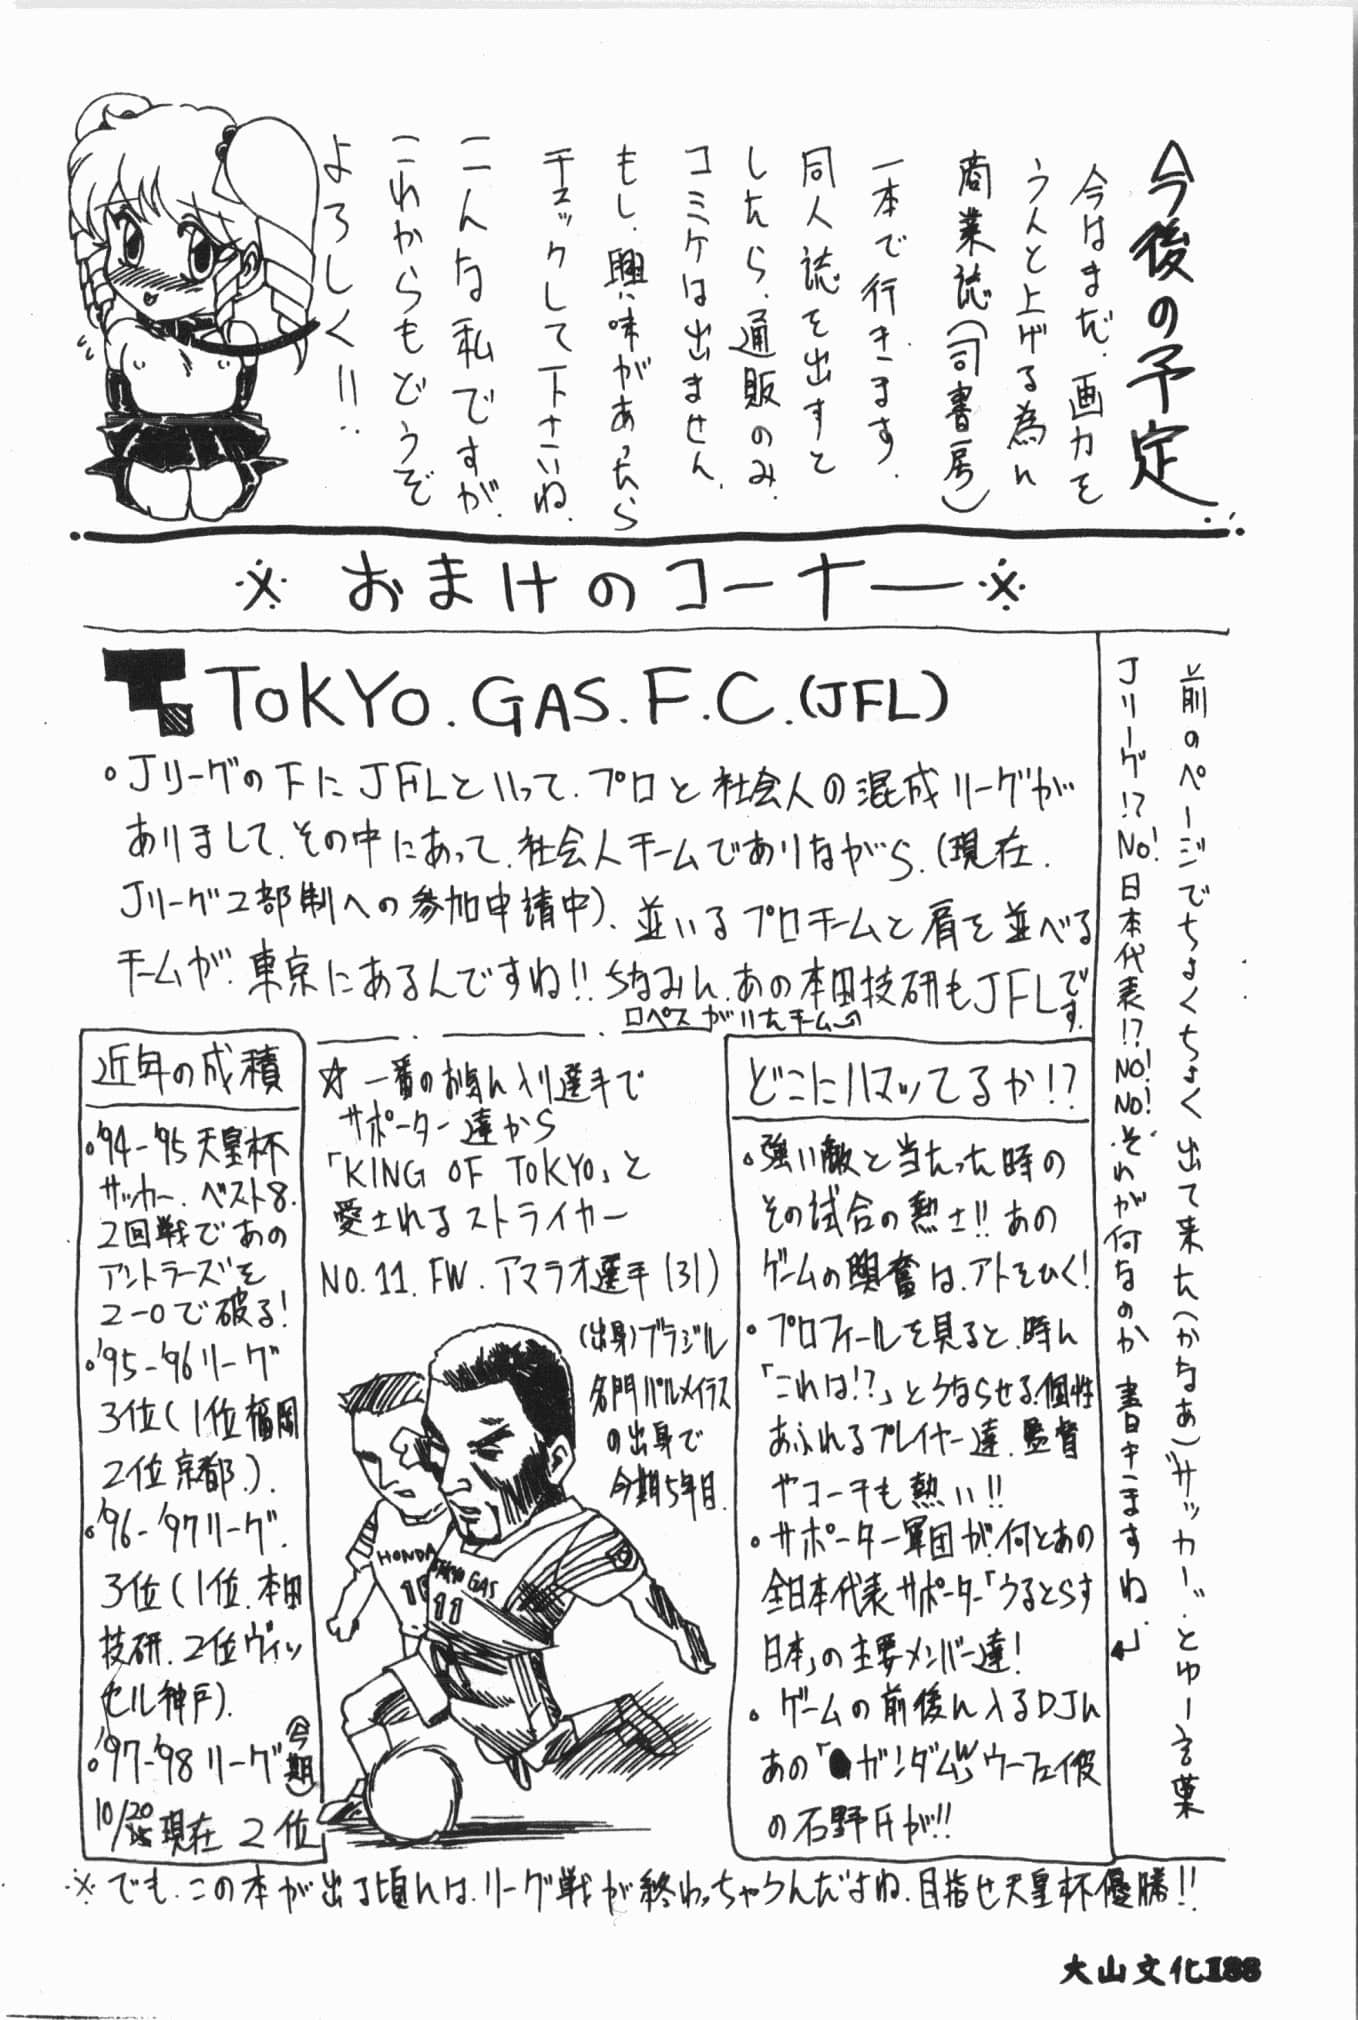 今後の予定
今はまだ、画力を
うんと上げる為に
商業誌（司書房）
一本で行きます。
同人誌を出すと
したら、通販のみ、
コミケは出ません。
もし、興味があったら
チェックして下さいね。
こんな私ですが、
これからもどうぞ
よろしく!!
※おまけのコーナー※
前のページでちょくちょく出て来た(かなぁ)"サッカー"。とゆー言葉
Jリーグ!?NO!日本代表!?NO!NO!それが何なのか書きますね。
TOKYO.GAS.F.C.(JFL)
Jリーグの下にJFLといって、プロと社会人の混成リーグが
ありまして、その中にあって、社会人チームでありながら、(現在、
Jリーグ2部制への参加申請中)、並いるプロチームと肩を並べる
チームが、東京にあるんですね!!ちなみに、あの本田技研もJFLです。
ロペスがいたチーム
近年の成積
'94-'95天皇杯
サッカー、ベスト8。
2回戦であの
アントラーズを
2-0で破る!
'95-'96リーグ
3位(1位福岡
2位京都。)
'96-'97リーグ。
3位(1位、本田
技研、2位ヴィッ
セル神戸)。
'97-'98リーグ(今期)
10/20現在 2位
☆一番のお気に入り選手で
サポーター達から
「KING OF TOKYO」と
愛されるストライカー
NO.11.FW.アマラオ選手(31)
(出身)ブラジル
名門パルメイラス
の出身で
今期5年目。
HONDA
10
TOKYO GAS
11
どこにハマッてるか!?
強い敵と当たった時の
その試合の熱さ!!あの
ゲームの興奮は、アトをひく!
プロフィールを見ると、時に
「これは!?」とうならせる、個性
あふれるプレイヤー達、監督
やコーチも熱い!!
サポーター軍団が、何とあの
全日本代表サポーター「うるとらす
日本」の主要メンバー達!
ゲームの前後に入るDJに
あの「ガンダムW」ウーフェイ役
の石野氏が!!
※でも、この本が出る頃には、リーグ戦が終わっちゃうんだよね、目指せ天皇杯優勝!!
大山文化188